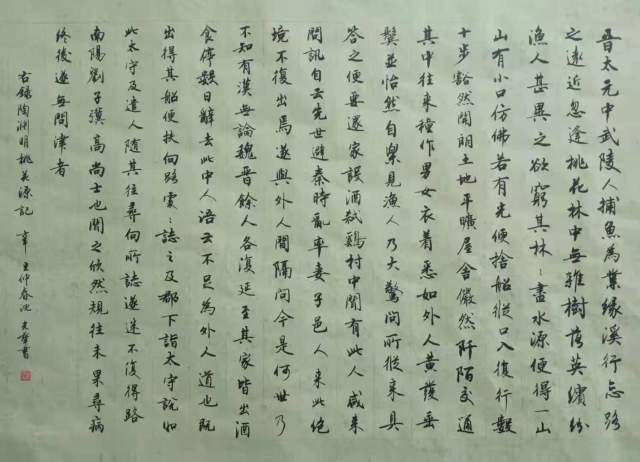 晉太元中武陵人捕魚為業緣溪行忘路
之遠近忽逢桃花林中無雜樹落英繽紛
漁人甚異之欲窮其林〻盡水源便得一山
山有小口仿佛若有光便捨船從口入復行數
十步豁然開朗土地平曠屋舍儼然阡陌交通
其中往來種作男女衣着悉如外人黃髮垂
髫並怡然自樂見漁人乃大驚問所從來具
答之便要還家設酒殺鷄村中聞有此人咸來
問訊自云先世避秦時亂率妻子邑人來此絕
境不復出焉遂與外人間隔問今是何世乃
不知有漢無論魏晉餘人各復延至其家皆出酒
食停數日辭去此中人語云不足為外人道也既
出得其船便扶向路處〻誌之及郡下詣太守說如
此太守及遣人隨其往尋向所誌遂迷不復得路
南陽劉子驥高尚士也聞之欣然規往未果尋病
終後遂無問津者
右錄陶淵明桃花源記 辛丑仲春沈書